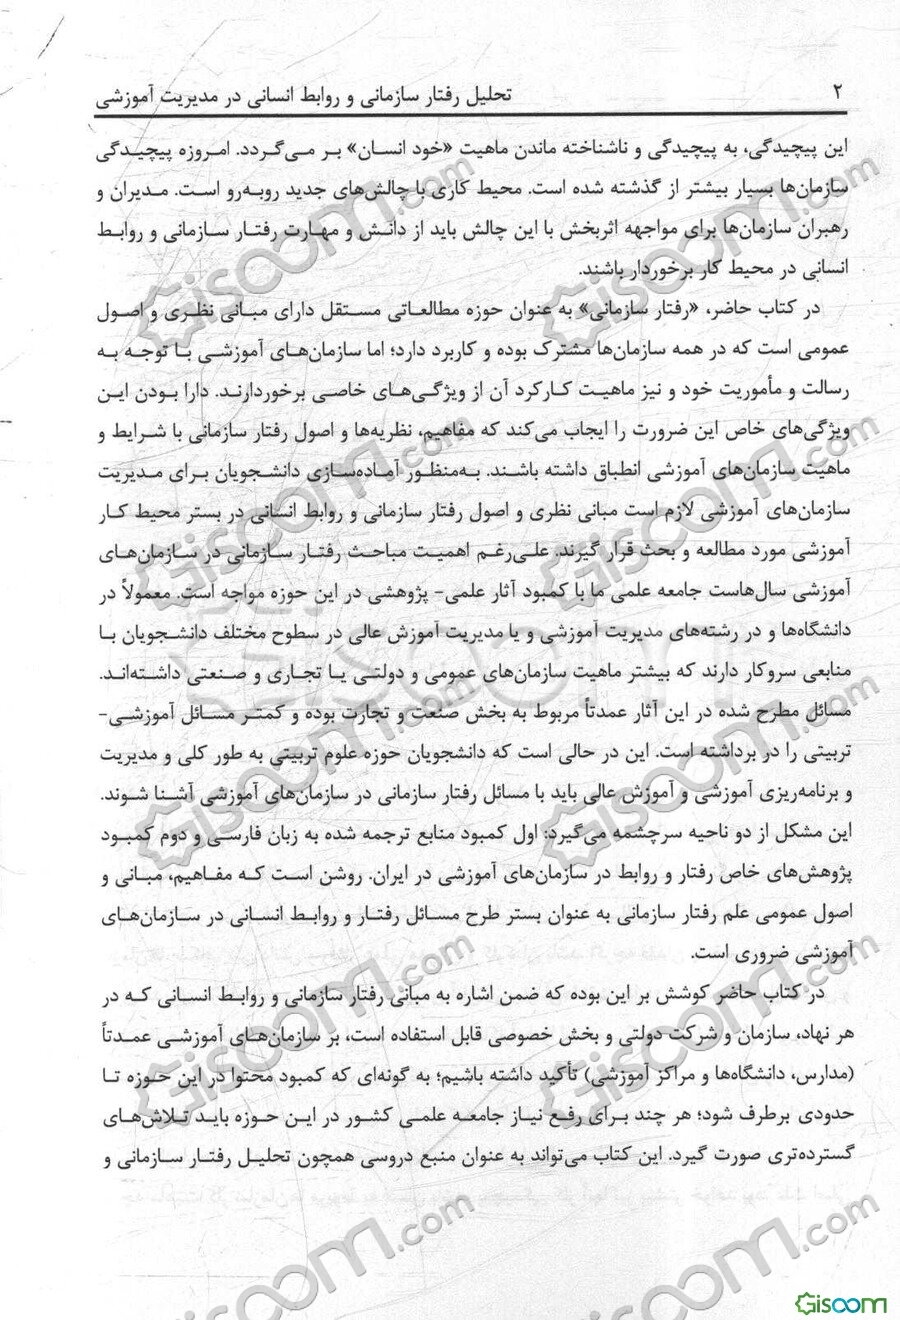 ۲ تحلیل رفتار سازمانی و روابط انسانی در مدیریت آموزشی
این پیچیدگی، به پیچیدگی و ناشناخته ماندن ماهیت «خود انسان» بر می‌گردد. امروزه پیچیدگی
سازمان‌ها بسیار بیشتر از گذشته شده است. محیط کاری با چالش‌های جدید روبه‌رو است. مدیران و
رهبران سازمان‌ها برای مواجهه اثربخش با این چالش باید از دانش و مهارت رفتار سازمانی و روابط
انسانی در محیط کار برخوردار باشند.
در کتاب حاضر، «رفتار سازمانی» به عنوان حوزه مطالعاتی مستقل دارای مبانی نظری و اصول
عمومی است که در همه سازمان‌ها مشترک بوده و کاربرد دارد؛ اما سازمان‌های آموزشی با توجه به
رسالت و مأموریت خود و نیز ماهیت کارکرد آن از ویژگی‌های خاصی برخوردارند. دارا بودن این
ویژگی‌های خاص این ضرورت را ایجاب می‌کند که مفاهیم، نظریه‌ها و اصول رفتار سازمانی با شرایط و
ماهیت سازمان‌های آموزشی انطباق داشته باشند. به‌منظور آماده‌سازی دانشجویان برای مدیریت
سازمان‌های آموزشی لازم است مبانی نظری و اصول رفتار سازمانی و روابط انسانی در بستر محیط کار
آموزشی مورد مطالعه و بحث قرار گیرند. علی‌رغم اهمیت مباحث رفتار سازمانی در سازمان‌های
آموزشی سال‌هاست جامعه علمی ما با کمبود آثار علمی- پژوهشی در این حوزه مواجه است. معمولاً در
دانشگاه‌ها و در رشته‌های مدیریت آموزشی و یا مدیریت آموزش عالی در سطوح مختلف دانشجویان با
منابعی سروکار دارند که بیشتر ماهیت سازمان‌های عمومی و دولتی یا تجاری و صنعتی داشته‌اند.
مسائل مطرح شده در این آثار عمدتاً مربوط به بخش صنعت و تجارت بوده و کمتر مسائل آموزشی-
تربیتی را در برداشته است. این در حالی است که دانشجویان حوزه علوم تربیتی به طور کلی و مدیریت
و برنامه‌ریزی آموزشی و آموزش عالی باید با مسائل رفتار سازمانی در سازمان‌های آموزشی آشنا شوند.
این مشکل از دو ناحیه سرچشمه می‌گیرد: اول کمبود منابع ترجمه شده به زبان فارسی و دوم کمبود
پژوهش‌های خاص رفتار و روابط در سازمان‌های آموزشی در ایران. روشن است که مفاهیم، مبانی و
اصول عمومی علم رفتار سازمانی به عنوان بستر طرح مسائل رفتار و روابط انسانی در سازمان‌های
آموزشی ضروری است.
در کتاب حاضر کوشش بر این بوده که ضمن اشاره به مبانی رفتار سازمانی و روابط انسانی که در
هر نهاد، سازمان و شرکت دولتی و بخش خصوصی قابل استفاده است، بر سازمان‌های آموزشی عمدتاً
(مدارس، دانشگاه‌ها و مراکز آموزشی) تأکید داشته باشیم؛ به گونه‌ای که کمبود محتوا در این حوزه تا
حدودی برطرف شود؛ هر چند برای رفع نیاز جامعه علمی کشور در این حوزه باید تلاش‌های
گسترده‌تری صورت گیرد. این کتاب می‌تواند به عنوان منبع دروسی همچون تحلیل رفتار سازمانی و
Gisoom